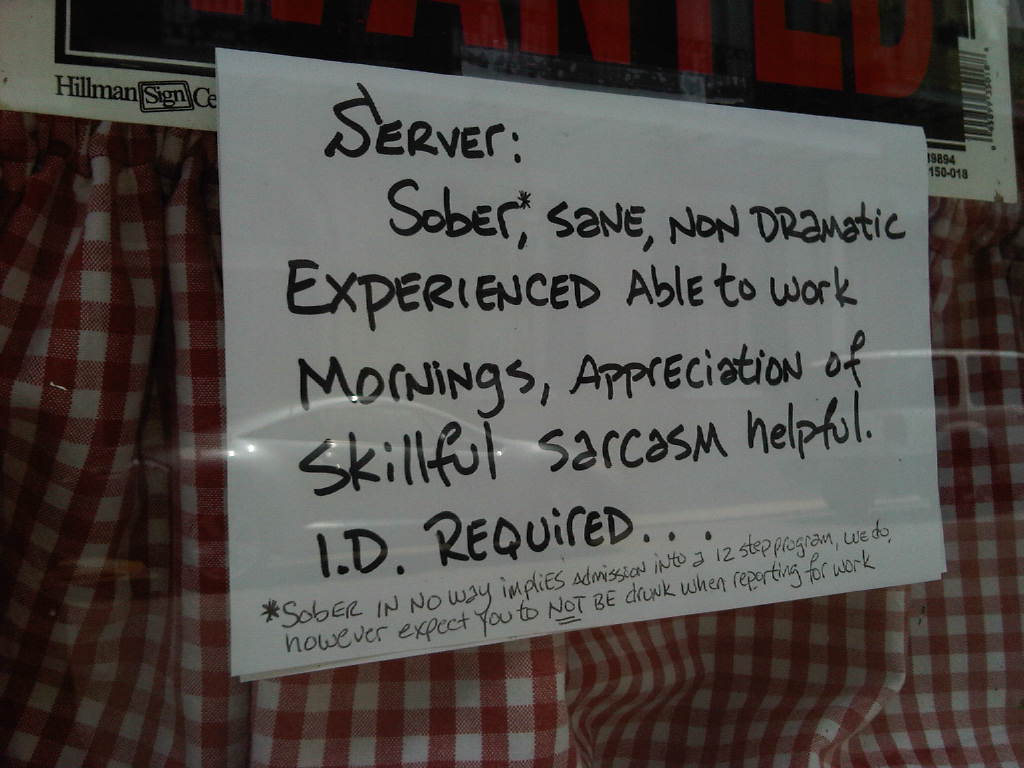 WANTED
Hillman Sign Ce
19894
150-018
SERVER:
Sober*, SANE, NON DRamatic
EXPERIENCED Able to work
MorNiNgs, AppreciatioN of
skillful sarcasm helpful.
I.D. REQUIRED...
*SobER IN NO way impliES admission into a 12 step program, we do,
however expect you to NOT BE drunk when reporting for work